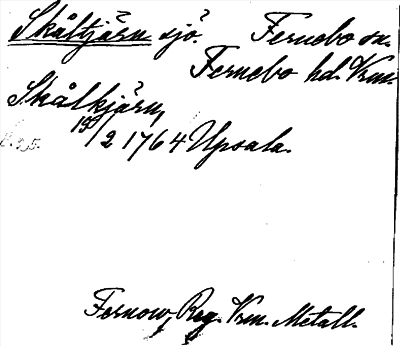 Skåltjärn sjö? Fernebo sn.
Fernebo hd. Vrm.
Skålkjärn,
19/2 1764 Upsala.
Fernow, Reg. Vrm. Metall.